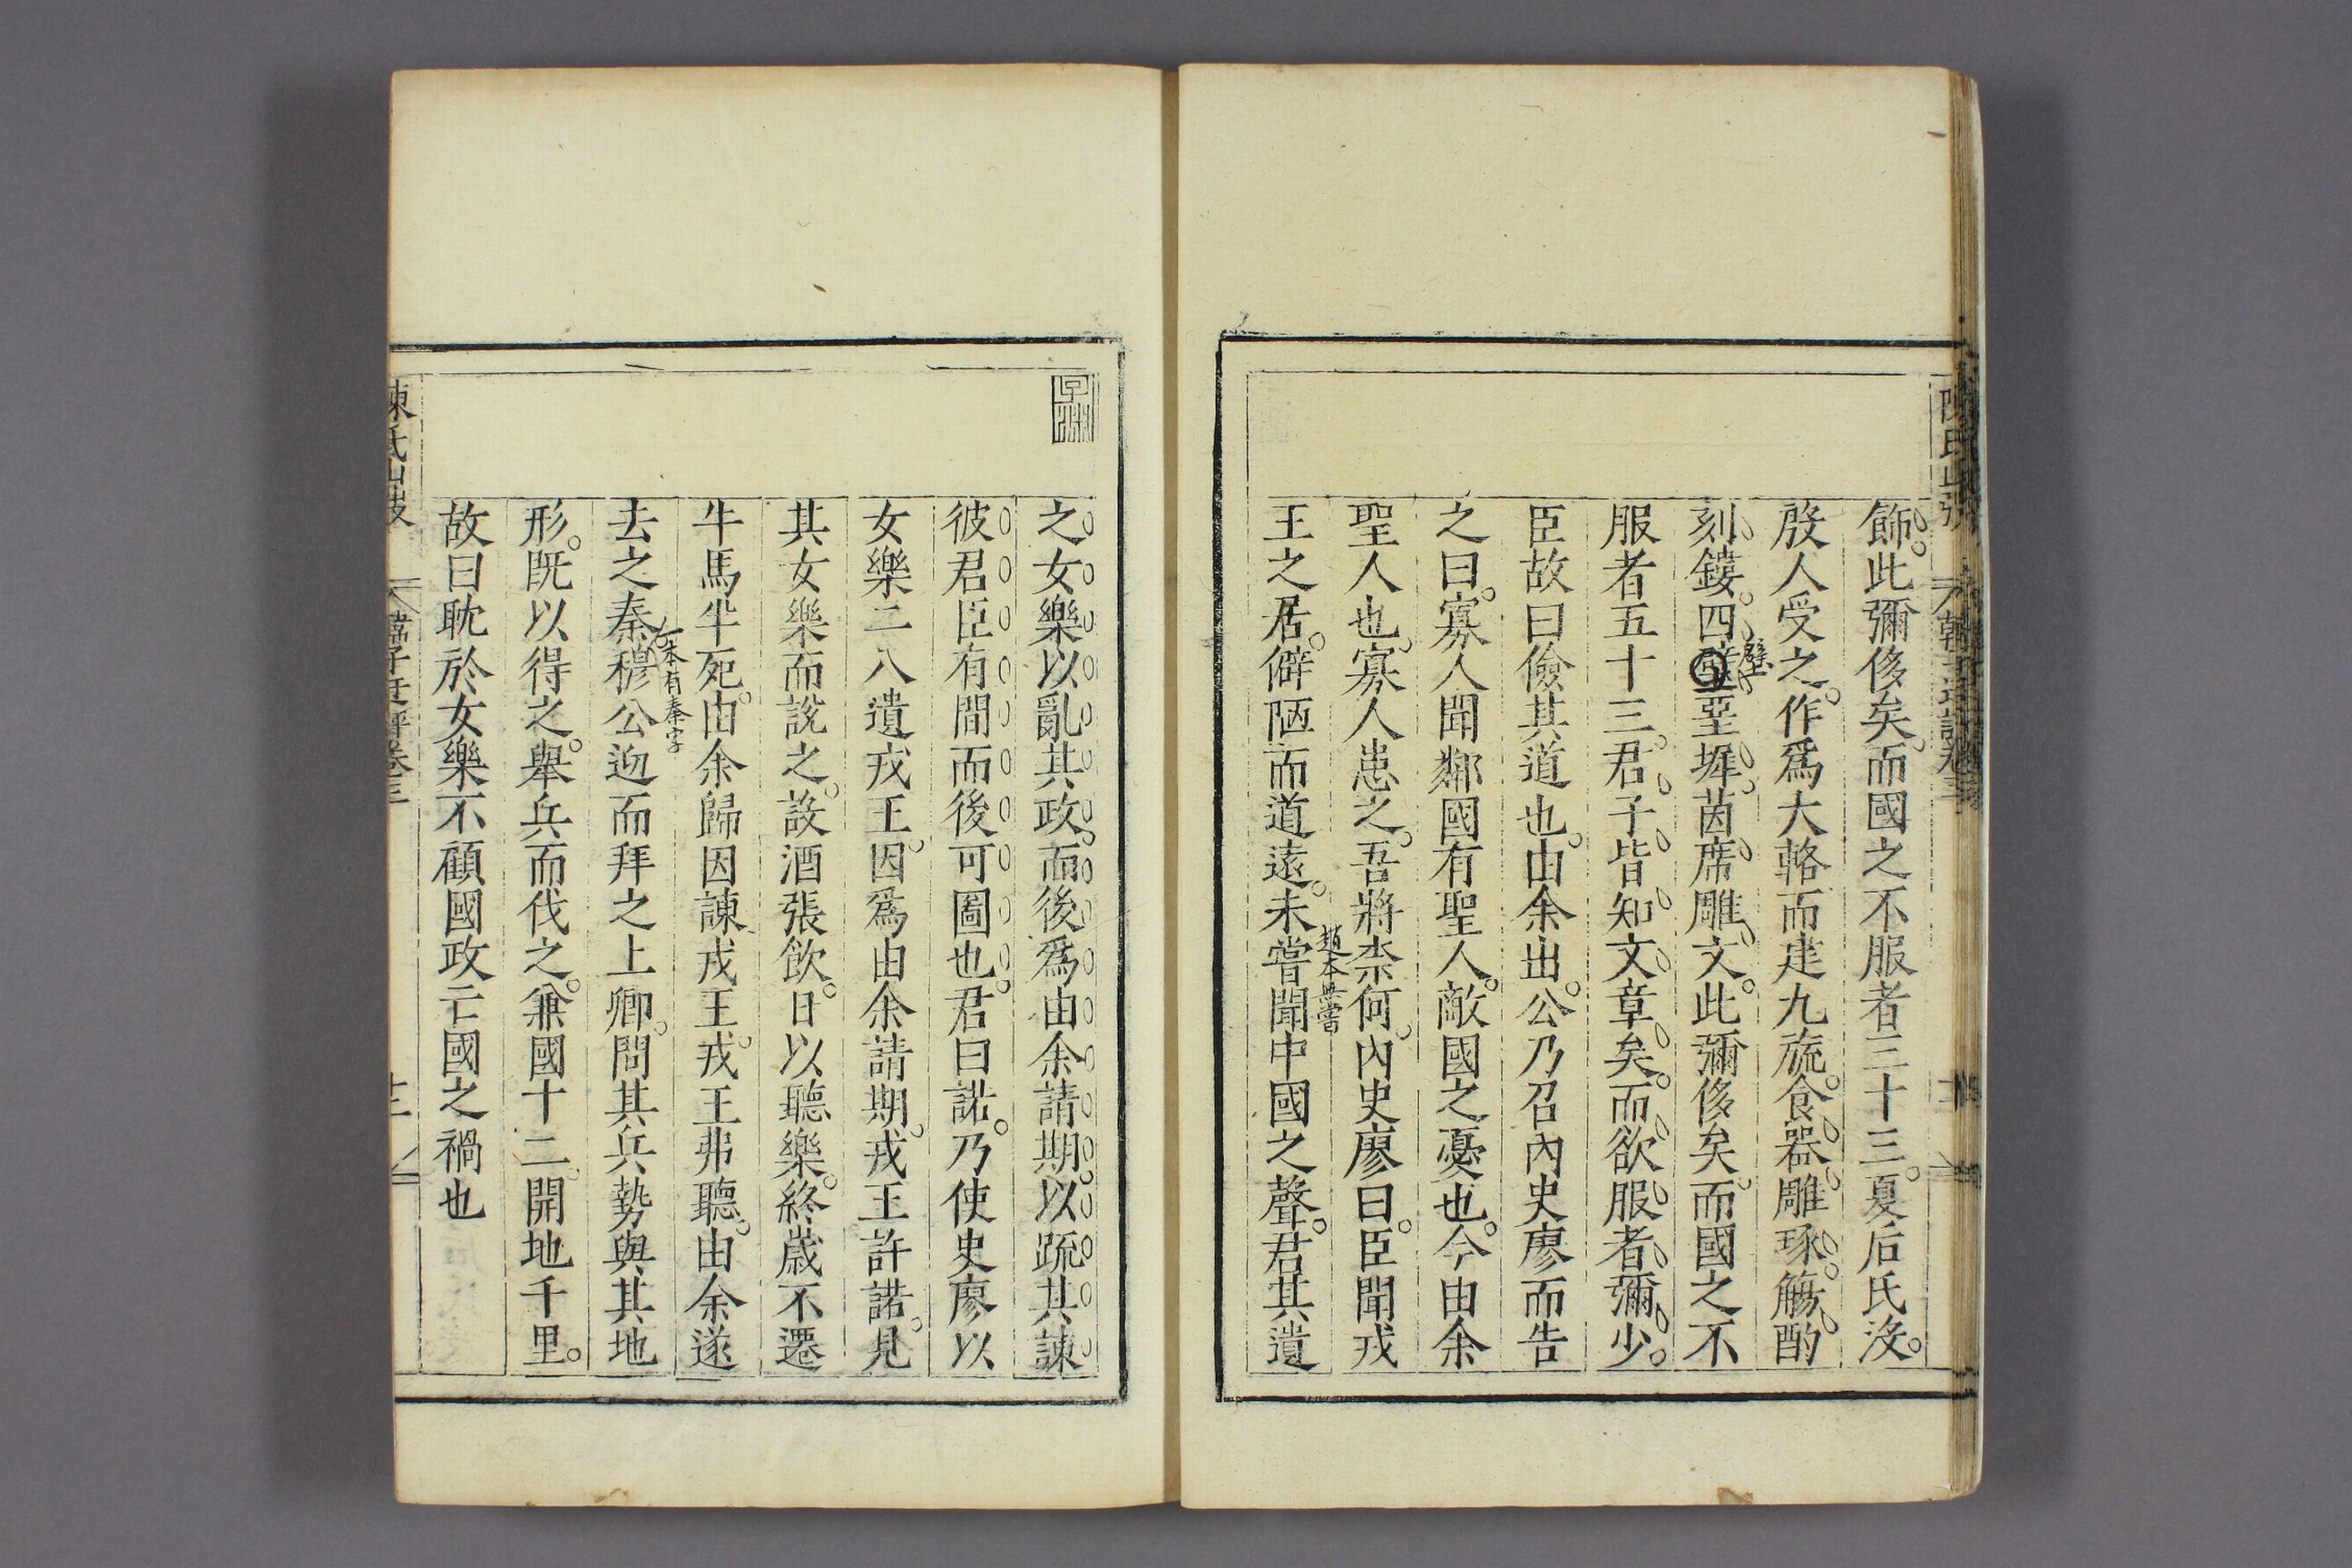 飾。此彌侈矣。而國之不服者三十三。夏后氏沒。
殷人受之。作爲大輅而建九旒。食器雕琢。觴酌
刻鏤。四
壁
堊墀。茵席雕文。此彌侈矣。而國之不
服者五十三。君子皆知文章矣。而欲服者彌少。
臣故曰儉其道也。由余出。公乃召內史廖而告
之曰。寡人聞鄰國有聖人。敵國之憂也。今由余
聖人也。寡人患之。吾將柰何。內史廖曰。臣聞戎
趙本無嘗
王之居。僻陋而道遠。未嘗聞中國之聲。君其遺
之女樂以亂其政。而後爲由余請期。以疏其諫
彼君臣有間而後可圖也。君曰諾。乃使史廖以
女樂二八遺戎王。因爲由余請期。戎王許諾。見
其女樂而說之。設酒張飲。日以聽樂。終歲不遷
牛馬半死。由余歸因諫戎王。戎王弗聽。由余遂
一本有秦字
去之秦穆公迎而拜之上卿。問其兵勢與其地
形。旣以得之。舉兵而伐之。兼國十二。開地千里。
故曰耽於女樂不顧國政亡國之禍也
韓子迂評卷三